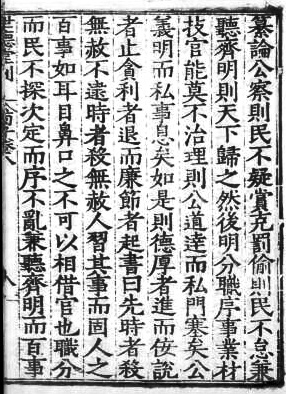 纂論公察則民不疑賞克罰偷則民不怠兼
聽齊明則天下歸之然後明分職序事業材
技官能莫不治理則公道達而私門塞矣公
義明而私事息矣如是則德厚者進而佞說
者止貪利者退而廉節者起書曰先時者殺
無赦不逮時者殺無赦人習其事而固人之
百事如耳目鼻口之不可以相借官也職分
而民不探次定而序不亂兼聽齊明而百事